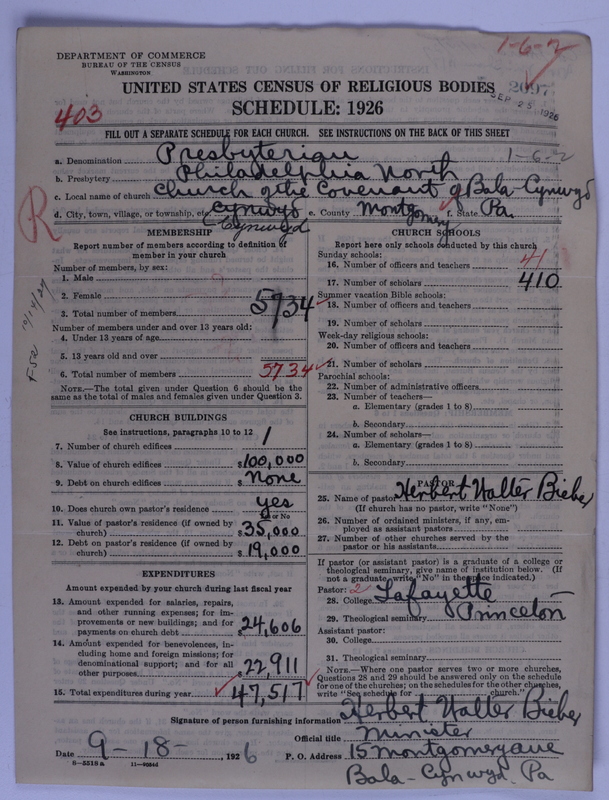 1-6-2
DEPARTMENT OF COMMERCE
BUREAU OF THE CENSUS
WASHINGTON
2097
SEP 25 1926
UNITED STATES CENSUS OF RELIGIOUS BODIES
403
SCHEDULE: 1926
FILL OUT A SEPARATE SCHEDULE FOR EACH CHURCH. SEE INSTRUCTIONS ON THE BACK OF THIS SHEET
a. Denomination Presbyterian 1-6-2
b. Presbytery Philadelphia North
c. Local name of church Church of the Covenant of Bala-Cynwyd
d. City, town, village, or township, etc. Cynwyd e. County Montgomery f. State Pa.
(Cynwyd)
R
MEMBERSHIP
Report number of members according to definition of
member in your church
Number of members, by sex:
1. Male
2. Female
3. Total number of members 5734
Number of members under and over 13 years old:
4. Under 13 years of age
5. 13 years old and over
6. Total number of members 5734
NOTE.—The total given under Question 6 should be the
same as the total of males and females given under Question 3.
CHURCH BUILDINGS
See instructions, paragraphs 10 to 12
7. Number of church edifices 1
8. Value of church edifices $100,000
9. Debt on church edifices $ None
10. Does church own pastor's residence yes
Yes or No
11. Value of pastor's residence (if owned by
church) $35,000
12. Debt on pastor's residence (if owned by
church) $19,000
EXPENDITURES
Amount expended by your church during last fiscal year
13. Amount expended for salaries, repairs,
and other running expenses; for im-
provements or new buildings; and for
payments on church debt $24,606
14. Amount expended for benevolences, in-
cluding home and foreign missions; for
denominational support; and for all
other purposes $22,911
15. Total expenditures during year $47,517
CHURCH SCHOOLS
Report here only schools conducted by this church
Sunday schools:
16. Number of officers and teachers 41
17. Number of scholars 410
Summer vacation Bible schools:
18. Number of officers and teachers
19. Number of scholars
Week-day religious schools:
20. Number of officers and teachers
21. Number of scholars
Parochial schools:
22. Number of administrative officers
23. Number of teachers—
a. Elementary (grades 1 to 8)
b. Secondary
24. Number of scholars—
a. Elementary (grades 1 to 8)
b. Secondary
PASTOR
25. Name of pastor Herbert Walter Bieber
(If church has no pastor, write "None")
26. Number of ordained ministers, if any, em-
ployed as assistant pastors
27. Number of other churches served by the
pastor or his assistants
If pastor (or assistant pastor) is a graduate of a college or
theological seminary, give name of institution below. (If
not a graduate write "No" in the space indicated.)
Pastor: 2
28. College Lafayette
29. Theological seminary Princeton
Assistant pastor:
30. College
31. Theological seminary
NOTE.—Where one pastor serves two or more churches,
Questions 28 and 29 should be answered only on the schedule
for one of the churches; on the schedules for the other churches,
write "See schedule for church."
Signature of person furnishing information Herbert Walter Bieber
Official title Minister
Date 9-18- 1926 P. O. Address 15 Montgomery ave
8-5518a
Bala-Cynwyd. Pa